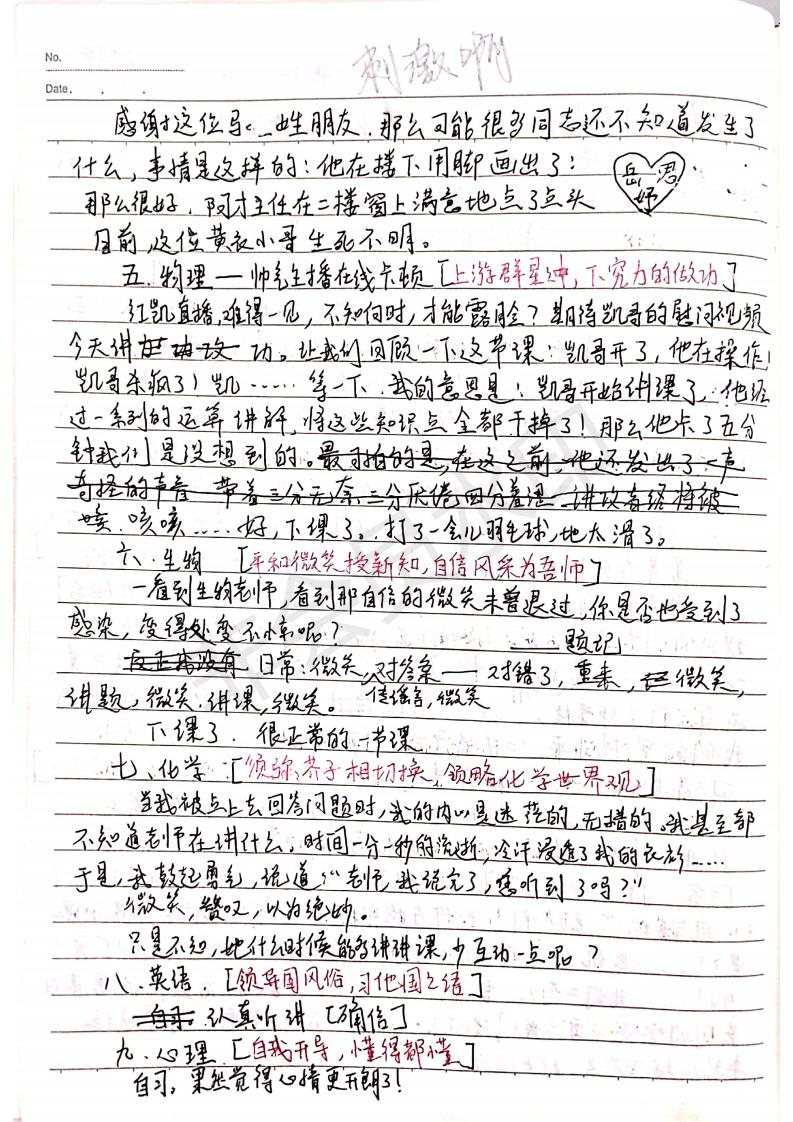 No.
刺激啊
Date . . .
感谢这位马姓朋友.那么可能很多同志还不知道发生了
什么,事情是这样的:他在楼下用脚画出了:
岳 君
妤
那么很好.阿才主任在二楼窗上满意地点了点头
目前,这位黄衣小哥生死不明。
五.物理——帅气主播在线卡顿[上游群星冲,下究力的做功]
红凯直播,难得一见,不知何时,才能露脸?期待凯哥的慰问视频
今天讲 功。让我们回顾一下这节课:凯哥开了,他在操作!
凯哥杀疯了!凯……等一下.我的意思是!凯哥开始讲课了,他经
过一系列的运算讲解,将这些知识点全都干掉了!那么他卡了五分
钟我们是没想到的。最可怕的是,在这之前,他还发出了一声
奇怪的声音 带着三分无奈三分厌倦四分羞涩
咳.咳咳……好,下课了。打了一会儿羽毛球,地太滑了。
六.生物 [平和微笑授新知,自信风采为吾师]
一看到生物老师,看到那自信的微笑未曾退过,你是否也受到了
感染,变得处变不惊呢?
——题记
反正我没有 日常:微笑,对答案——对错了,重来,微笑,
讲题,微笑.讲课,微笑。信谣言,微笑
下课了.很正常的一节课
七、化学 [须弥芥子相切换,领略化学世界观]
当我被点上去回答问题时,我的内心是迷茫的,无措的。我甚至都
不知道老师在讲什么,时间一分一秒的流逝,冷汗浸透了我的衣衫……
于是,我鼓起勇气,说道:“老师,我说完了,您听到了吗?”
微笑,赞叹,以为绝妙。
只是不知,她什么时候能多讲讲课,少互动一点呢?
八.英语.[领异国风俗,习他国之语]
自习.认真听讲[确信]
九.心理[自我开导,懂得都懂]
自习,果然觉得心情更开朗了!